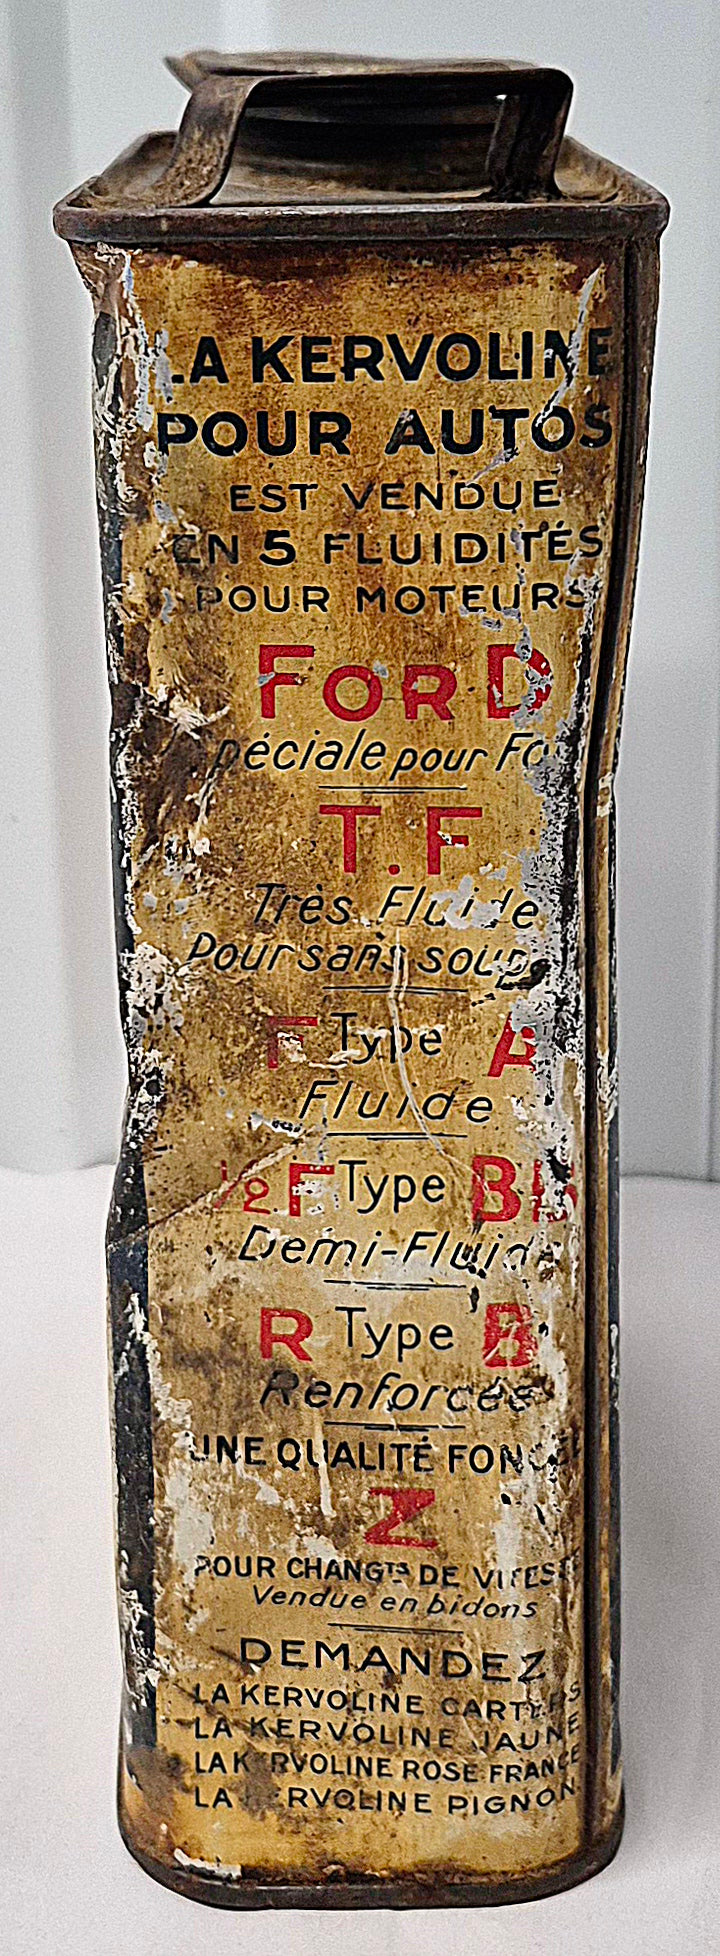 LA KERVOLINE
POUR AUTOS
EST VENDUE
EN 5 FLUIDITÉS
POUR MOTEURS
FORD
péciale pour Fo
T.F
Très Fluide
Pour sans soup
F Type A
Fluide
½ F Type BB
Demi-Fluide
R Type B
Renforcée
UNE QUALITÉ FONCÉE
Z
POUR CHANGTS DE VITESSE
Vendue en bidons
DEMANDEZ
LA KERVOLINE CARTERS
LA KERVOLINE JAUNE
LA KERVOLINE ROSE FRANCE
LA KERVOLINE PIGNON